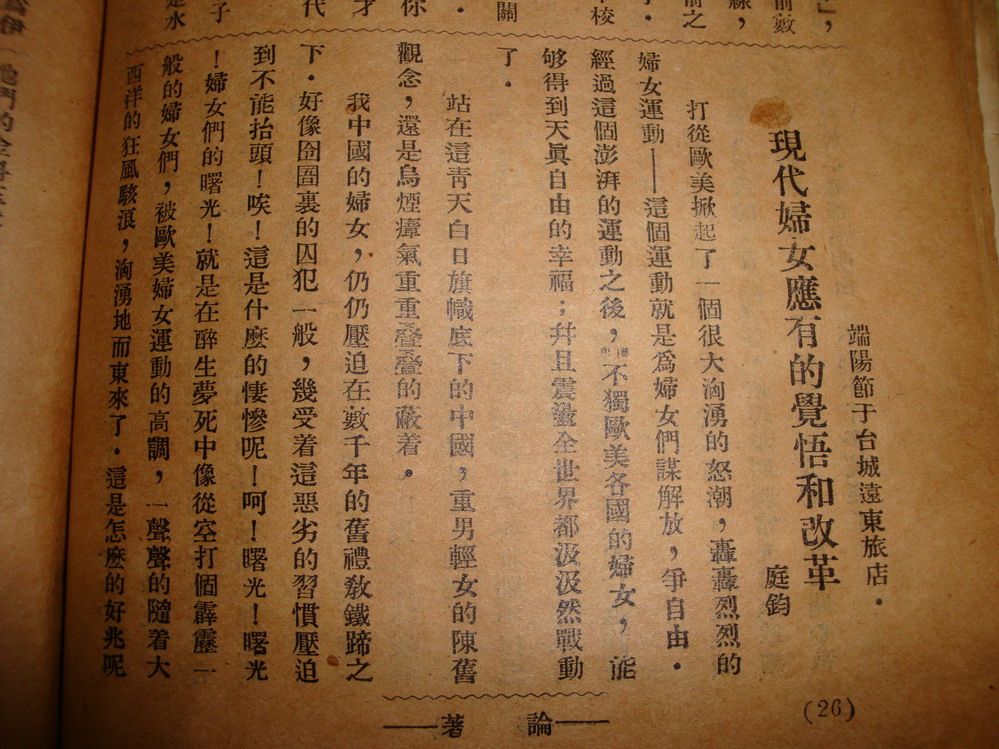 端陽節于台城遠東旅店．
現代婦女應有的覺悟和改革
庭鈞
打從歐美掀起了一個很大洶湧的怒潮，轟轟烈烈的
婦女運動——這個運動就是爲婦女們謀解放，爭自由．
經過這個澎湃的運動之後，不獨歐美各國的婦女，能
够得到天眞自由的幸福；幷且震盪全世界都汲汲然戰動
了．
站在這靑天白日旗幟底下的中國，重男輕女的陳舊
觀念，還是烏煙瘴氣重重叠叠的蔽着．
我中國的婦女，仍仍壓迫在數千年的舊禮敎鐵蹄之
下．好像囹圄裏的囚犯一般，幾受着這惡劣的習慣壓迫
到不能抬頭！唉！這是什麽的悽慘呢！呵！曙光！曙光
！婦女們的曙光！就是在醉生夢死中像從空打個霹靂一
般的婦女們，被歐美婦女運動的高調，一聲聲的隨着大
西洋的狂風駭浪，洶湧地而東來了．這是怎麽的好兆呢
論著
(26)